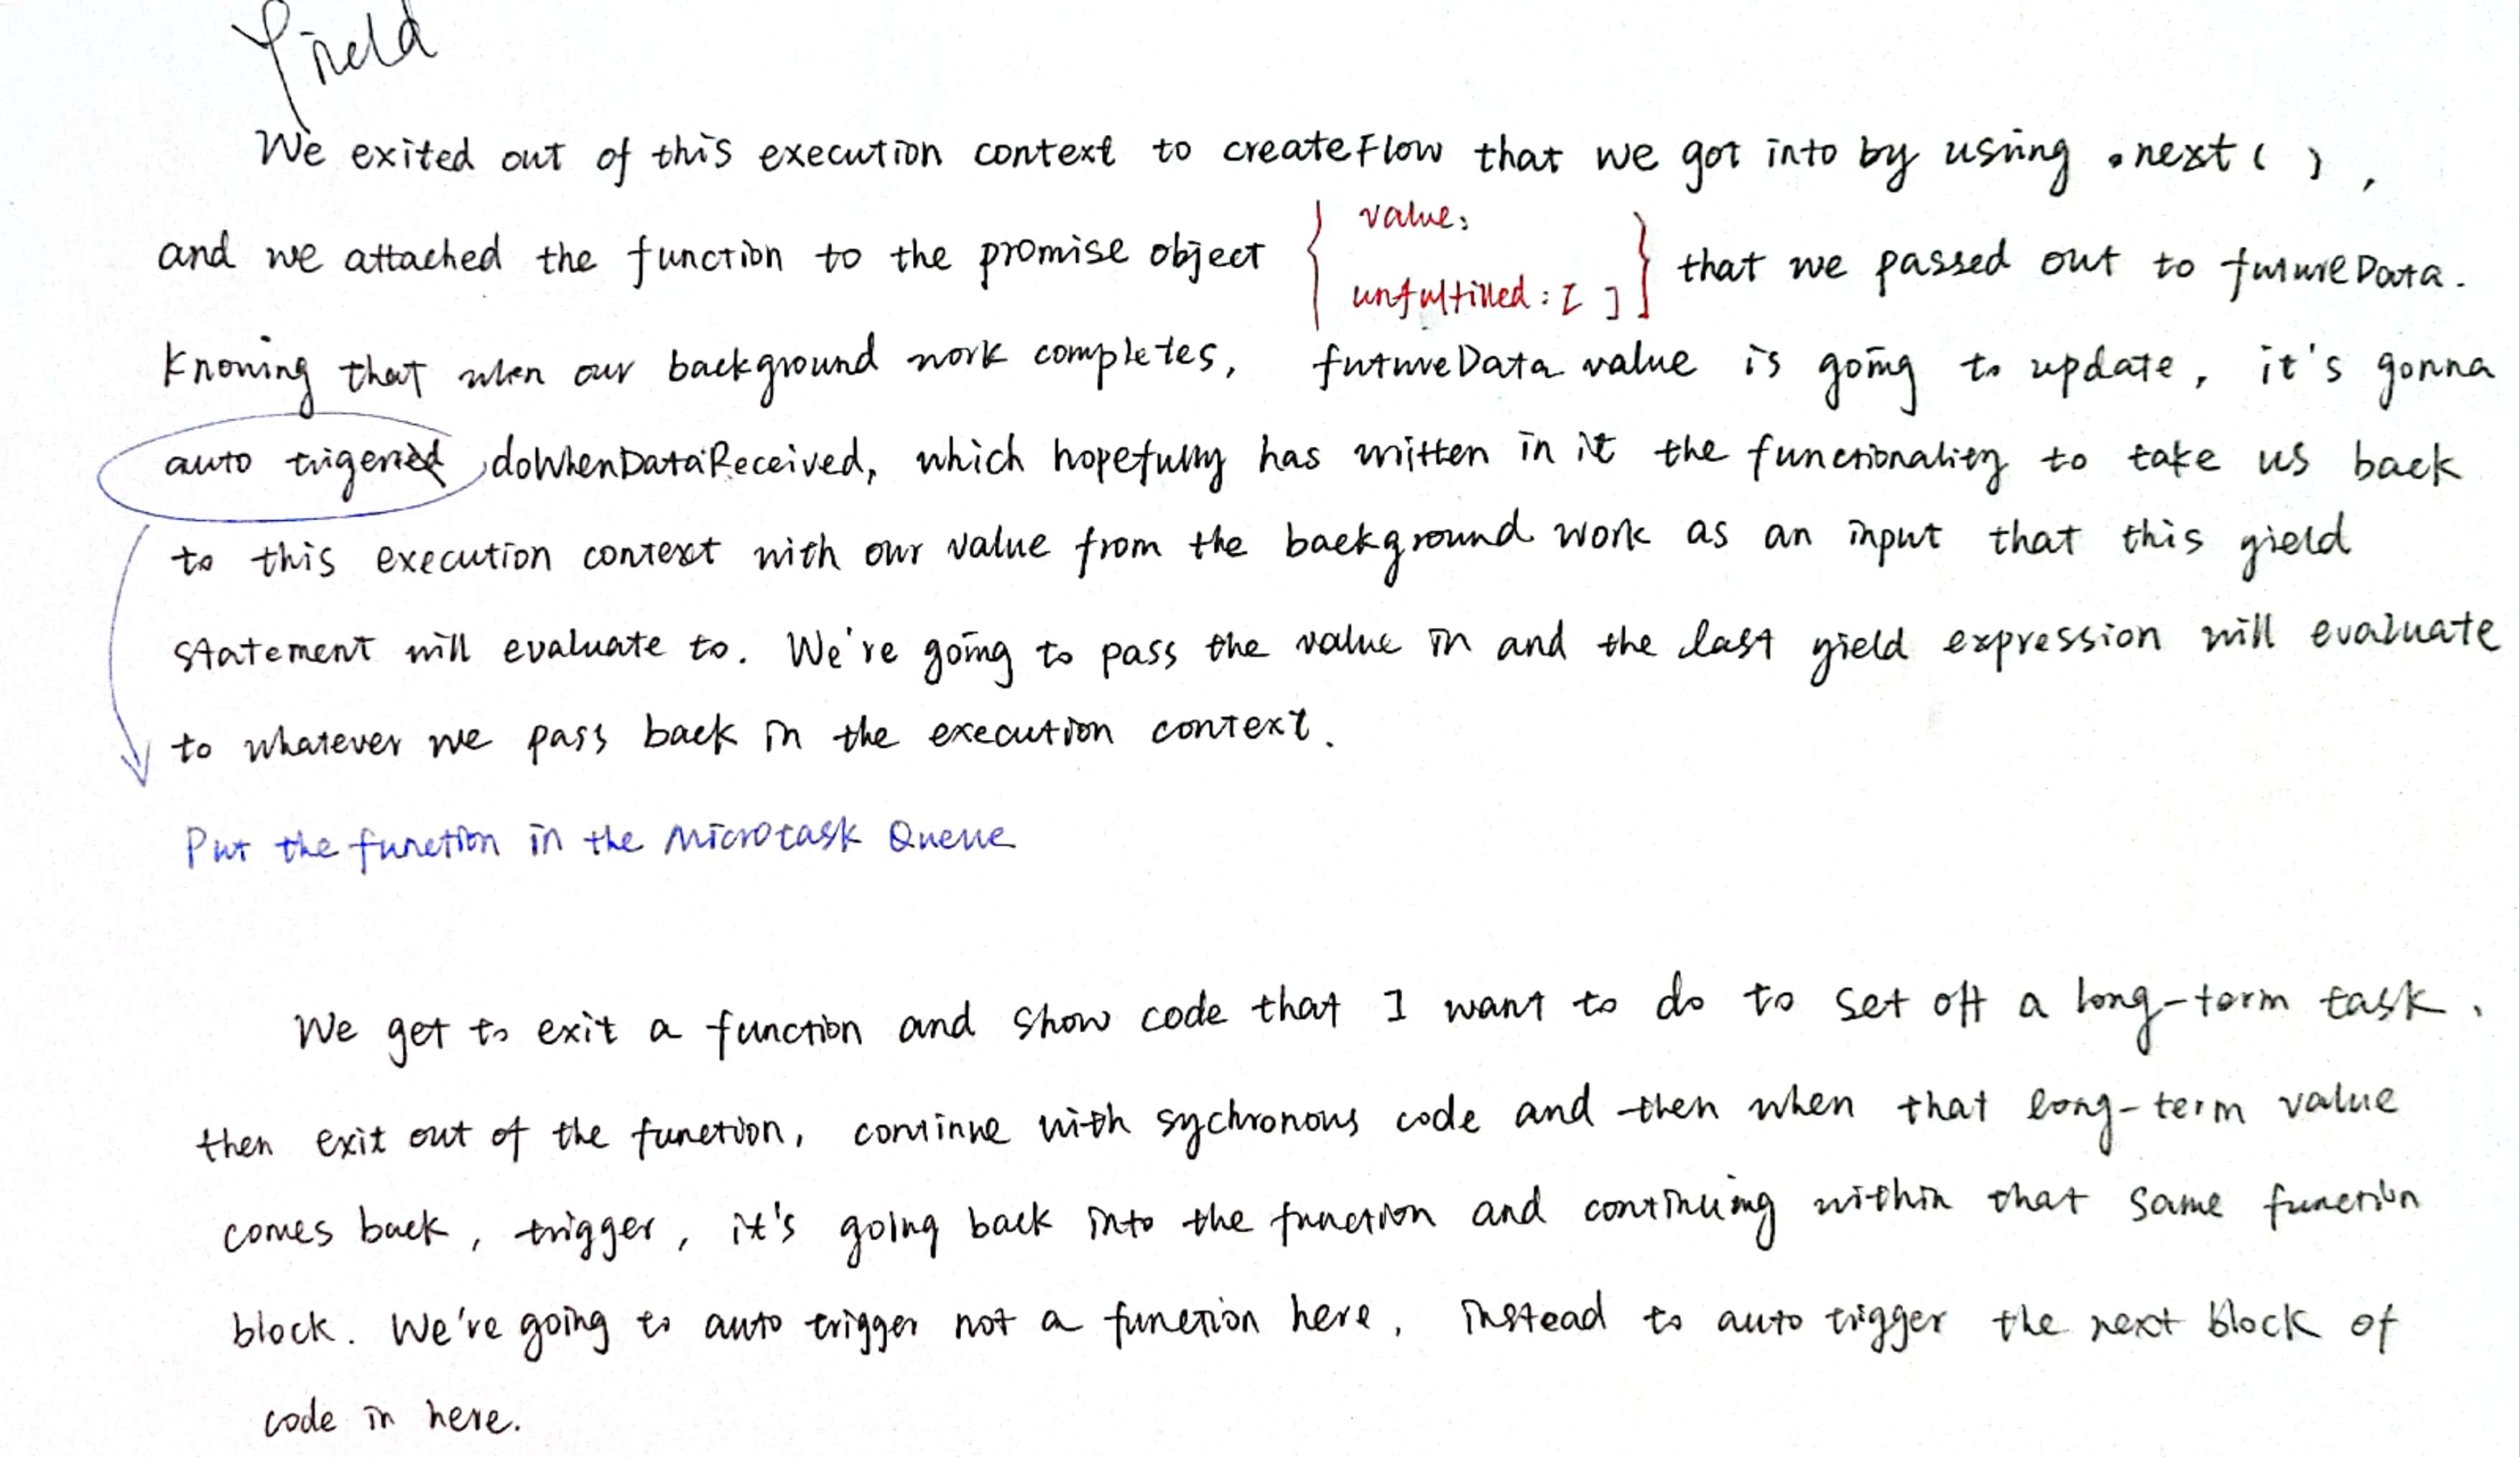 Yield
We exited out of this execution context to createFlow that we got into by using .next( ),
and we attached the function to the promise object { value: unfulfilled: [ ] } that we passed out to futureData.
Knowing that when our background work completes, futureData value is going to update, it's gonna
auto trigered doWhenDataReceived, which hopefully has written in it the functionality to take us back
to this execution context with our value from the background work as an input that this yield
statement will evaluate to. We're going to pass the value in and the last yield expression will evaluate
to whatever we pass back in the execution context.
Put the function in the Microtask Queue
We get to exit a function and show code that I want to do to set off a long-term task.
then exit out of the function, continue with sychronous code and then when that long-term value
comes back, trigger, it's going back into the function and continuing within that same function
block. We're going to auto trigger not a function here, instead to auto trigger the next block of
code in here.